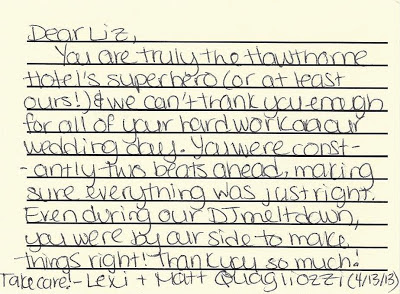 Dear Liz,
You are truly the Hawthorne
Hotel's superhero (or at least
ours!) & we can't thank you enough
for all of your hard work on our
wedding day. You were const-
-antly two beats ahead, making
sure everything was just right.
Even during our DJ meltdown,
you were by our side to make
things right! Thank you so much!
Take care! - Lexi + Matt Quagliozzi (4/13/13)